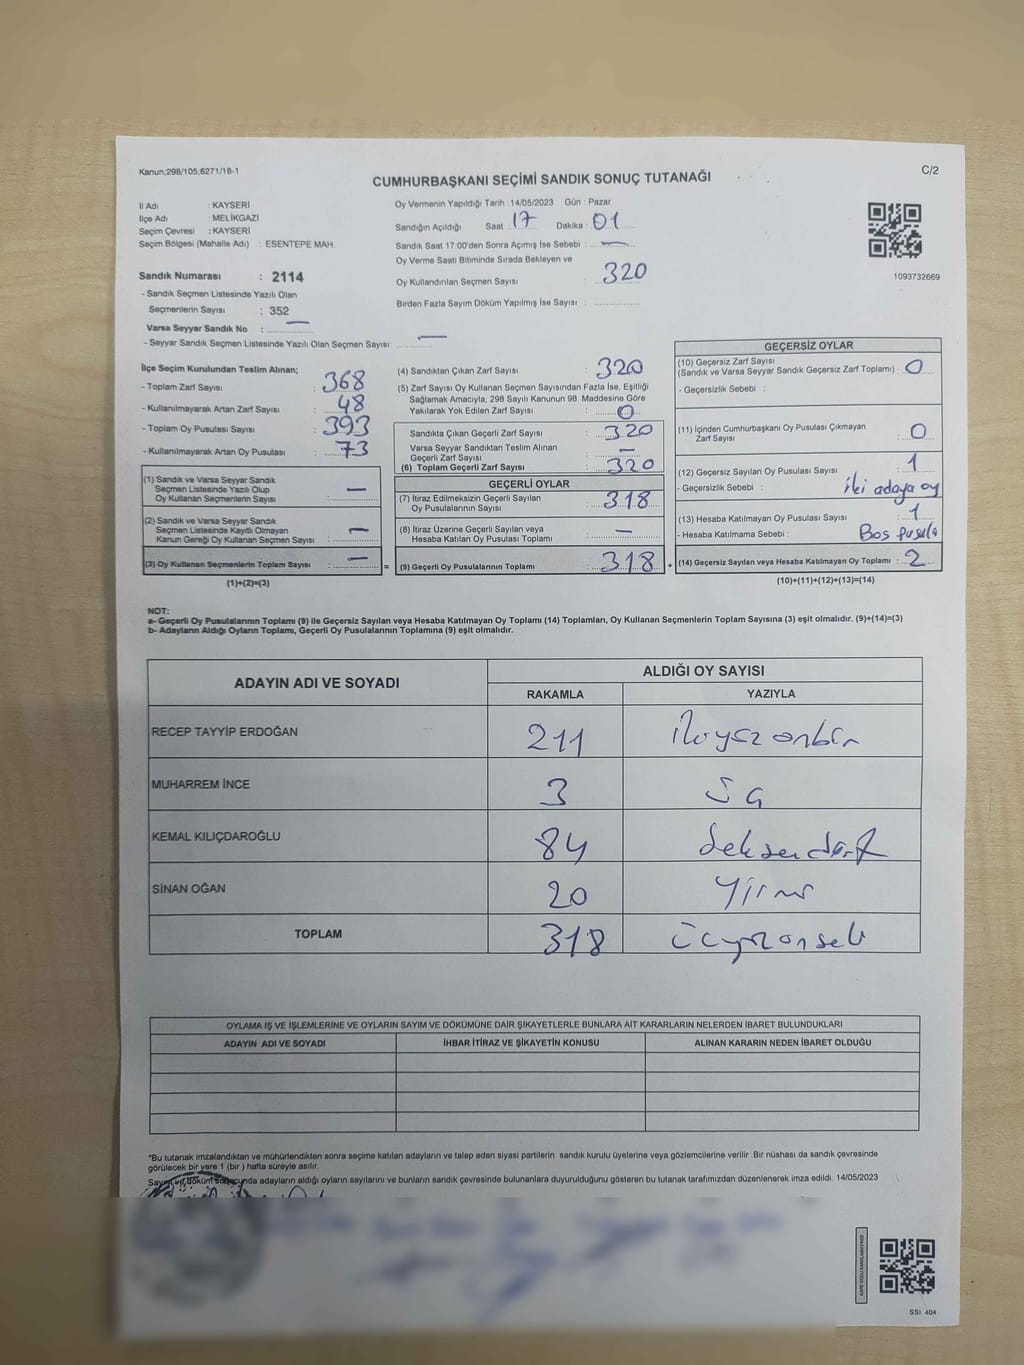 Kanun;298/105;6271/18-1
C/2
CUMHURBAŞKANI SEÇİMİ SANDIK SONUÇ TUTANAĞI
İl Adı : KAYSERİ
İlçe Adı : MELİKGAZİ
Seçim Çevresi : KAYSERİ
Seçim Bölgesi (Mahalle Adı) : ESENTEPE MAH.
Sandık Numarası : 2114
- Sandık Seçmen Listesinde Yazılı Olan
Seçmenlerin Sayısı : 352
Varsa Seyyar Sandık No : —
- Seyyar Sandık Seçmen Listesinde Yazılı Olan Seçmen Sayısı: —
Oy Vermenin Yapıldığı Tarih : 14/05/2023 Gün : Pazar
Sandığın Açıldığı Saat : 17 Dakika : 01
Sandık Saat 17:00'den Sonra Açımış İse Sebebi : —
Oy Verme Saati Bitiminde Sırada Bekleyen ve
Oy Kullandırılan Seçmen Sayısı : 320
Birden Fazla Sayım Döküm Yapılmış İse Sayısı :
1093732669
İlçe Seçim Kurulundan Teslim Alınan;
- Toplam Zarf Sayısı : 368
- Kullanılmayarak Artan Zarf Sayısı : 48
- Toplam Oy Pusulası Sayısı : 393
- Kullanılmayarak Artan Oy Pusulası : 73
(1) Sandık ve Varsa Seyyar Sandık
Seçmen Listesinde Yazılı Olup
Oy Kullanan Seçmenlerin Sayısı : —
(2) Sandık ve Varsa Seyyar Sandık
Seçmen Listesinde Kayıtlı Olmayan
Kanun Gereği Oy Kullanan Seçmen Sayısı : —
(3) Oy Kullanan Seçmenlerin Toplam Sayısı : — =
(1)+(2)=(3)
(4) Sandıktan Çıkan Zarf Sayısı : 320
(5) Zarf Sayısı Oy Kullanan Seçmen Sayısından Fazla İse, Eşitliği
Sağlamak Amacıyla, 298 Sayılı Kanunun 98. Maddesine Göre
Yakılarak Yok Edilen Zarf Sayısı : 0
Sandıkta Çıkan Geçerli Zarf Sayısı : 320
Varsa Seyyar Sandıktan Teslim Alınan
Geçerli Zarf Sayısı : —
(6) Toplam Geçerli Zarf Sayısı : 320
GEÇERLİ OYLAR
(7) İtiraz Edilmeksizin Geçerli Sayılan
Oy Pusulalarının Sayısı : 318
(8) İtiraz Üzerine Geçerli Sayılan veya
Hesaba Katılan Oy Pusulası Toplamı : —
(9) Geçerli Oy Pusulalarının Toplamı : 318 +
GEÇERSİZ OYLAR
(10) Geçersiz Zarf Sayısı
(Sandık ve Varsa Seyyar Sandık Geçersiz Zarf Toplamı) : 0
- Geçersizlik Sebebi :
(11) İçinden Cumhurbaşkanı Oy Pusulası Çıkmayan
Zarf Sayısı : 0
(12) Geçersiz Sayılan Oy Pusulası Sayısı : 1
- Geçersizlik Sebebi : İki adaya oy
(13) Hesaba Katılmayan Oy Pusulası Sayısı : 1
- Hesaba Katılmama Sebebi : Boş pusula
(14) Geçersiz Sayılan veya Hesaba Katılmayan Oy Toplamı : 2
(10)+(11)+(12)+(13)=(14)
NOT:
a- Geçerli Oy Pusulalarının Toplamı (9) ile Geçersiz Sayılan veya Hesaba Katılmayan Oy Toplamı (14) Toplamları, Oy Kullanan Seçmenlerin Toplam Sayısına (3) eşit olmalıdır. (9)+(14)=(3)
b- Adayların Aldığı Oyların Toplamı, Geçerli Oy Pusulalarının Toplamına (9) eşit olmalıdır.
ADAYIN ADI VE SOYADI
ALDIĞI OY SAYISI
RAKAMLA YAZIYLA
RECEP TAYYİP ERDOĞAN 211 İkiyüzonbir
MUHARREM İNCE 3
KEMAL KILIÇDAROĞLU 84 Seksendört
SİNAN OĞAN 20 Yirmi
TOPLAM 318 Üçyüzonseki
OYLAMA İŞ VE İŞLEMLERİNE VE OYLARIN SAYIM VE DÖKÜMÜNE DAİR ŞİKAYETLERLE BUNLARA AİT KARARLARIN NELERDEN İBARET BULUNDUKLARI
ADAYIN ADI VE SOYADI İHBAR İTİRAZ VE ŞİKAYETİN KONUSU ALINAN KARARIN NEDEN İBARET OLDUĞU
*Bu tutanak imzalandıktan ve mühürlendikten sonra seçime katılan adayların ve talep eden siyasi partilerin sandık kurulu üyelerine veya gözlemcilerine verilir .Bir nüshası da sandık çevresinde
görülecek bir yere 1 (bir ) hafta süreyle asılır.
Sayım ve döküm sonucunda adayların aldığı oyların sayılarını ve bunların sandık çevresinde bulunanlara duyurulduğunu gösteren bu tutanak tarafımızdan düzenlenerek imza edildi. 14/05/2023
SSI 404